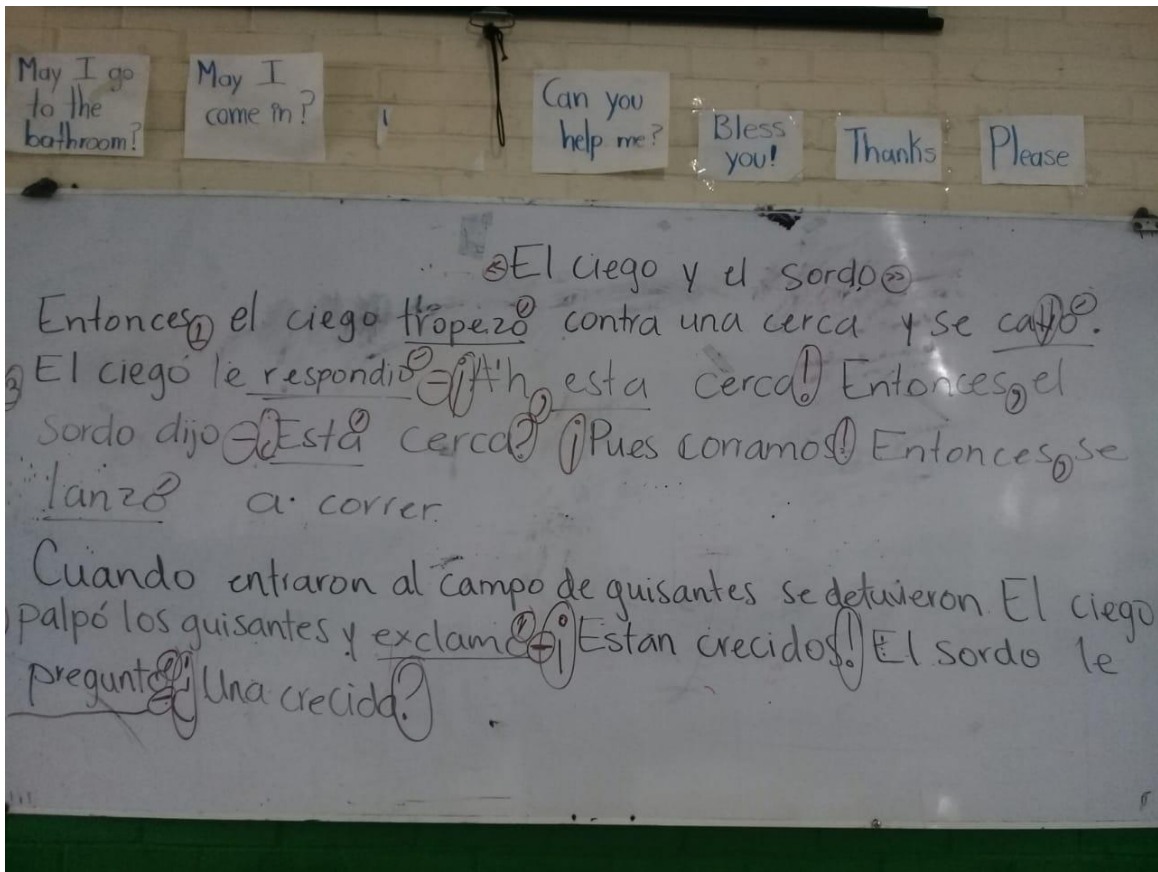 May I go
to the
bathroom?
May I
come in?
Can you
help me?
Bless
you!
Thanks
Please
«El ciego y el sordo»
Entonces, el ciego tropezó contra una cerca y se cayó.
El ciego le respondió -¡Ah, esta cerca! Entonces, el
sordo dijo -¿Está cerca? ¡Pues corramos! Entonces, se
lanzó a correr.
Cuando entraron al campo de guisantes se detuvieron. El ciego
palpó los guisantes y exclamó -¡Estan crecidos! El sordo le
preguntó -¿Una crecida?